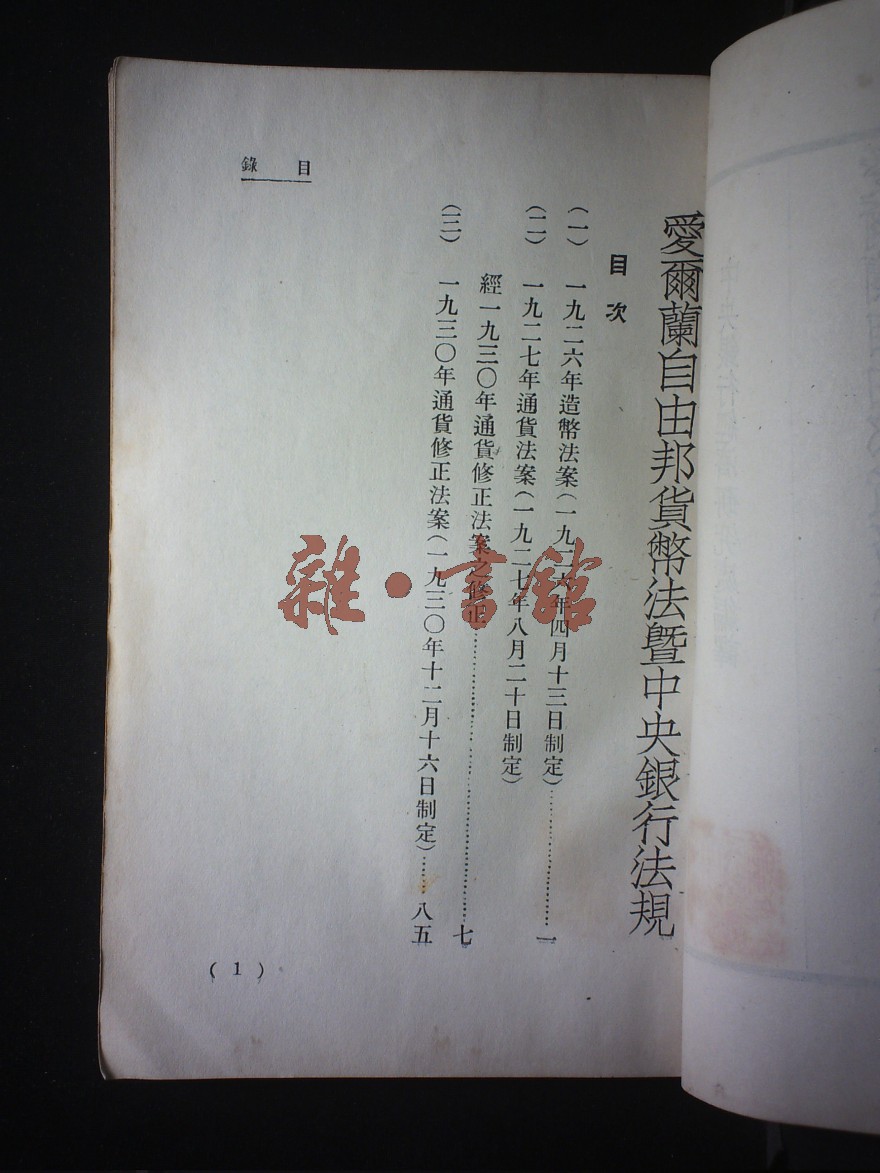 愛爾蘭自由邦貨幣法暨中央銀行法規
目次
(一) 一九二六年造幣法案(一九二六年四月十三日制定)……一
(二) 一九二七年通貨法案(一九二七年八月二十日制定)
經一九三〇年通貨修正法案之修正……七
(三) 一九三〇年通貨修正法案(一九三〇年十二月十六日制定)……八五
錄目
(1)
雜·書館